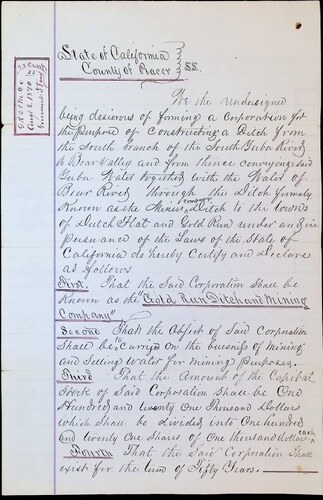 State of California
County of Placer } SS.
We the undersigned
being desirous of forming a corporation for
the purpose of constructing a Ditch from
the South branch of the South Yuba River
to Bear Valley and from thence conveying said
Yuba Water together with the Water of
Bear River through the Ditch formaly
Known as the Miners Ditch to the towns
of Dutch Flat and Gold Run under and in
persuance of the Laws of the State of
California do hereby Certify and Declare
as follows
First. That the Said Corporation Shall be
Known as the "Gold Run Ditch and Mining
Company"
Second That the Object of Said Corporation
Shall be "Carring on the buisness of Mining
and Selling Water for Mining purposes."
Third That the Amount of the Capital
Stock of Said Corporation Shall be One
Hundred and twenty One Thousand Dollars
which Shall be divided into One hundred
and twenty One Shares of One thousand dollars each
Fourth That the Said Corporation Shall
exist for the term of Fifty Years.